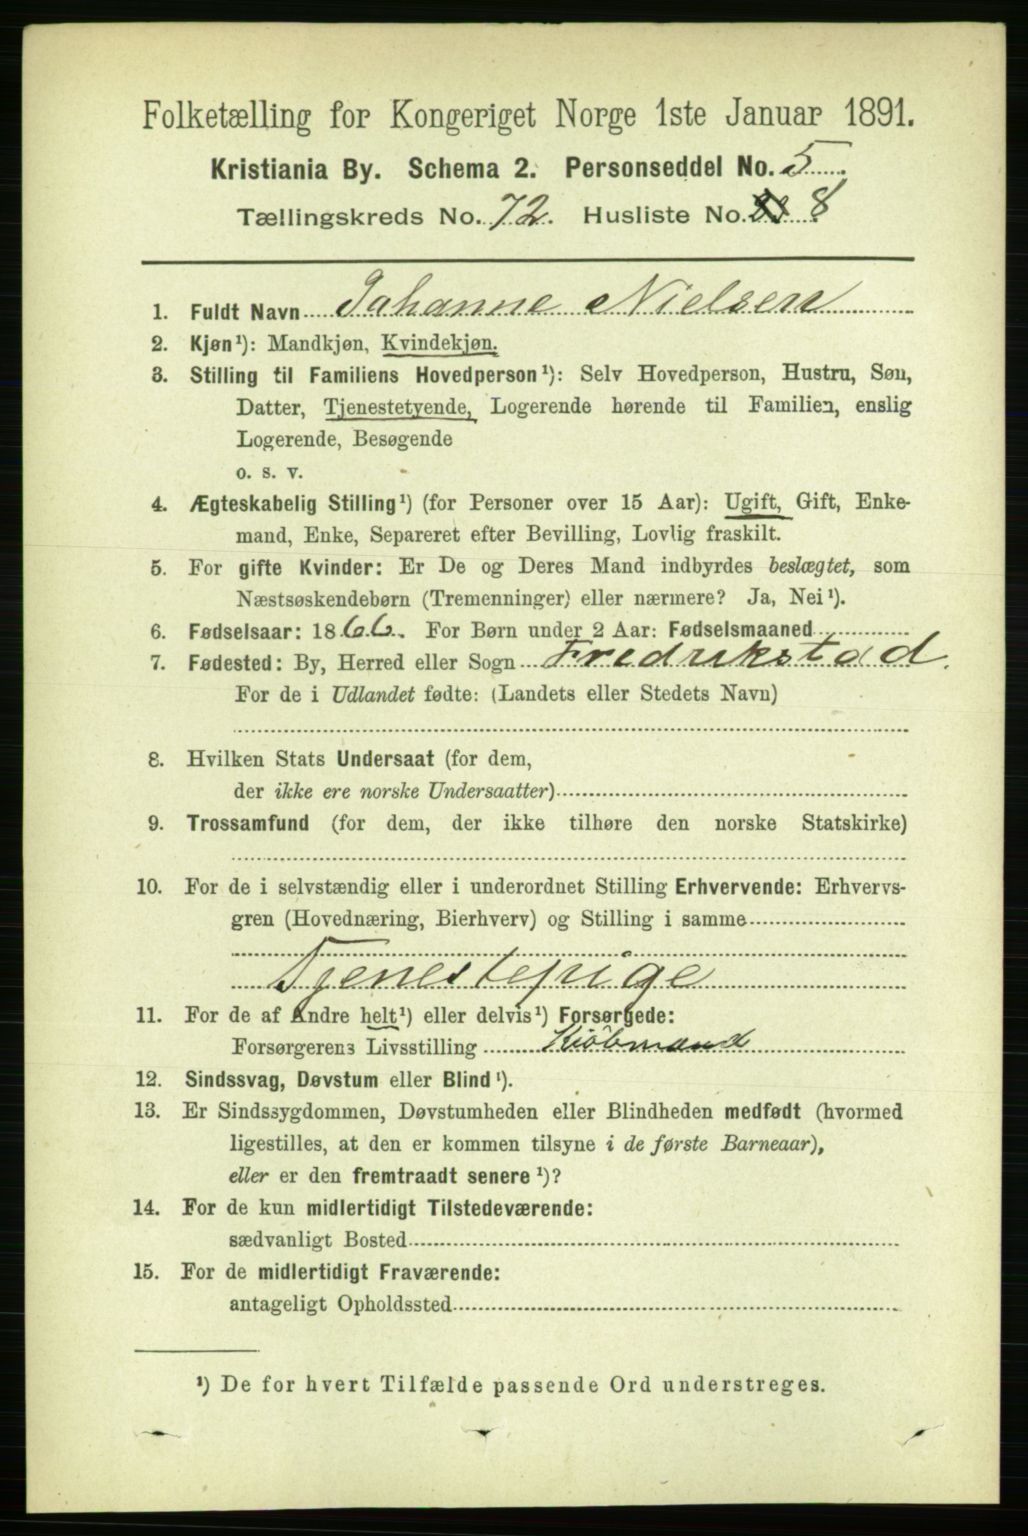 Folketælling for Kongeriget Norge 1ste Januar 1891.
Kristiania By. Schema 2. Personseddel No. 5.
Tællingskreds No. 72. Husliste No. 8
1. Fuldt Navn Johanne Nielsen
2. Kjøn¹): Mandkjøn, Kvindekjøn.
3. Stilling til Familiens Hovedperson¹): Selv Hovedperson, Hustru, Søn,
Datter, Tjenestetyende, Logerende hørende til Familien, enslig
Logerende, Besøgende
o. s. v.
4. Ægteskabelig Stilling¹) (for Personer over 15 Aar): Ugift, Gift, Enke-
mand, Enke, Separeret efter Bevilling, Lovlig fraskilt.
5. For gifte Kvinder: Er De og Deres Mand indbyrdes beslægtet, som
Næstsøskendebørn (Tremenninger) eller nærmere? Ja, Nei¹).
6. Fødselsaar: 1866. For Børn under 2 Aar: Fødselsmaaned
7. Fødested: By, Herred eller Sogn Fredrikstad.
For de i Udlandet fødte: (Landets eller Stedets Navn)
8. Hvilken Stats Undersaat (for dem,
der ikke ere norske Undersaatter)
9. Trossamfund (for dem, der ikke tilhøre den norske Statskirke)
10. For de i selvstændig eller i underordnet Stilling Erhvervende: Erhvervs-
gren (Hovednæring, Bierhverv) og Stilling i samme
Tjenestepige
11. For de af Andre helt¹) eller delvis¹) Forsørgede:
Forsørgerens Livsstilling Kiöbmand
12. Sindssvag, Døvstum eller Blind¹).
13. Er Sindssygdommen, Døvstumheden eller Blindheden medfødt (hvormed
ligestilles, at den er kommen tilsyne i de første Barneaar),
eller er den fremtraadt senere¹)?
14. For de kun midlertidigt Tilstedeværende:
sædvanligt Bosted
15. For de midlertidigt Fraværende:
antageligt Opholdssted
¹) De for hvert Tilfælde passende Ord understreges.